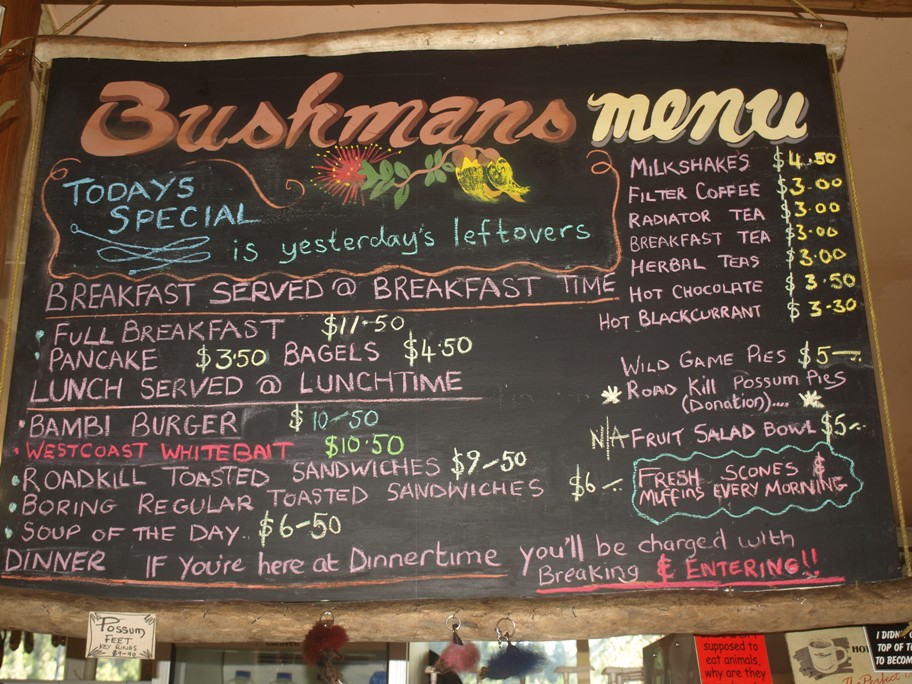 Bushmans menu
TODAYS
SPECIAL
is yesterday's leftovers
BREAKFAST SERVED @ BREAKFAST TIME
FULL BREAKFAST $11-50
PANCAKE $3.50 BAGELS $4.50
LUNCH SERVED @ LUNCHTIME
BAMBI BURGER $10-50
WESTCOAST WHITEBAIT $10.50
ROADKILL TOASTED SANDWICHES $9-50
BORING REGULAR TOASTED SANDWICHES $6-
SOUP OF THE DAY $6-50
DINNER IF You're here at Dinnertime you'll be charged with
Breaking & ENTERING!!
MILKSHAKE'S $4.50
FILTER COFFEE $3.00
RADIATOR TEA $3.00
BREAKFAST TEA $3.00
HERBAL TEAS $3.00
HOT CHOCOLATE $3.50
HOT BLACKCURRANT $3-30
WILD GAME PIES $5-
ROAD KILL POSSUM PIES
(DONATION)....
N/A FRUIT SALAD BOWL $5-
FRESH SCONES &
MUFFINS EVERY MORNING
POSSUM
FEET
KEY RINGS
supposed to
eat animals,
why are they
I DIDN'T
TOP OF
TO BECOM